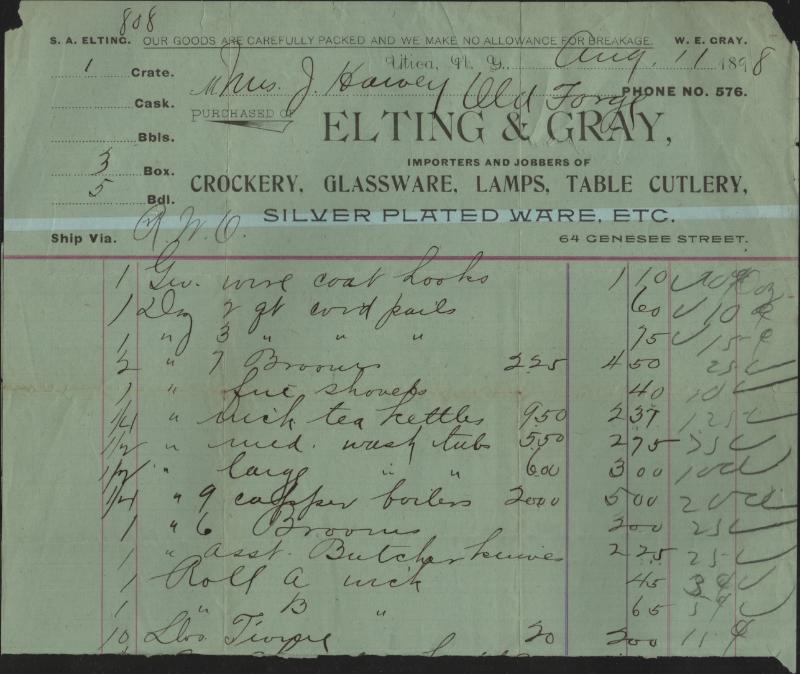 808
S. A. ELTING. OUR GOODS ARE CAREFULLY PACKED AND WE MAKE NO ALLOWANCE FOR BREAKAGE. W. E. GRAY.
Utica, N. Y., Aug. 11 1898
1 Crate.
M Mrs. J. Harvey Old Forge
PHONE NO. 576.
Cask.
PURCHASED OF
ELTING & GRAY,
Bbls.
IMPORTERS AND JOBBERS OF
3 Box.
CROCKERY, GLASSWARE, LAMPS, TABLE CUTLERY,
5 Bdl.
SILVER PLATED WARE, ETC.
Ship Via.
64 GENESEE STREET.
1 Gro. wire coat hooks 1 10
1 Dz 2 qt cov'd pails 60 10 ¢
1 " 3 " " " 75 15 ¢
2 " 7 Brooms 2 25 4 50 25
1 " fire shovels 40 10
1/4 " nick tea kettles 9 50 2 37 1 25
1/2 " med. wash tubs 5 50 2 75 75
1/2 " large " " 6 00 3 00
1/4 " 9 copper boilers 20 00 5 00
1 " 6 Brooms 2 00 25
1 " asst. Butcher knives 2 25 25
1 Roll A wick 45 3 ¢
1 " B " 65 5 ¢
10 Lbs. Twine 20 2 00